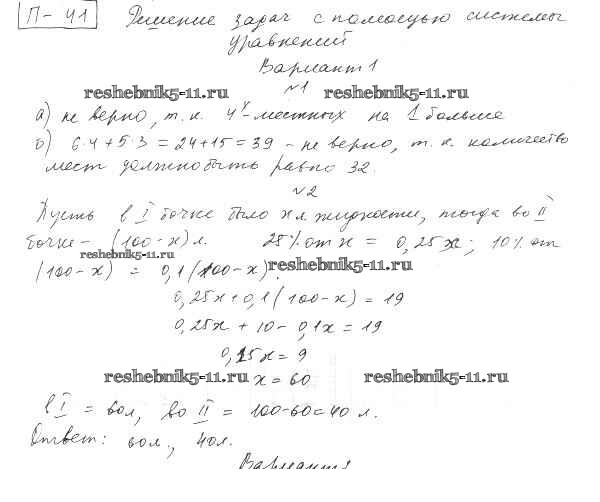 П-41 Решение задач с помощью системы
уравнений
Вариант 1
reshebnik5-11.ru №1 reshebnik5-11.ru
а) не верно, т.к. 4х-местных на 1 больше
б) 6·4+5·3=24+15=39 - не верно, т.к. количество
мест должно быть равно 32.
№2
Пусть в I бочке было x л жидкости, тогда во II
бочке - (100-x) л. 25% от x = 0,25x; 10% от
reshebnik5-11.ru reshebnik5-11.ru
(100-x) = 0,1(100-x).
0,25x+0,1(100-x)=19
0,25x+10-0,1x=19
0,15x=9
reshebnik5-11.ru x=60 reshebnik5-11.ru
в I = 60л, во II = 100-60=40 л.
Ответ: 60л., 40л.
Вариант